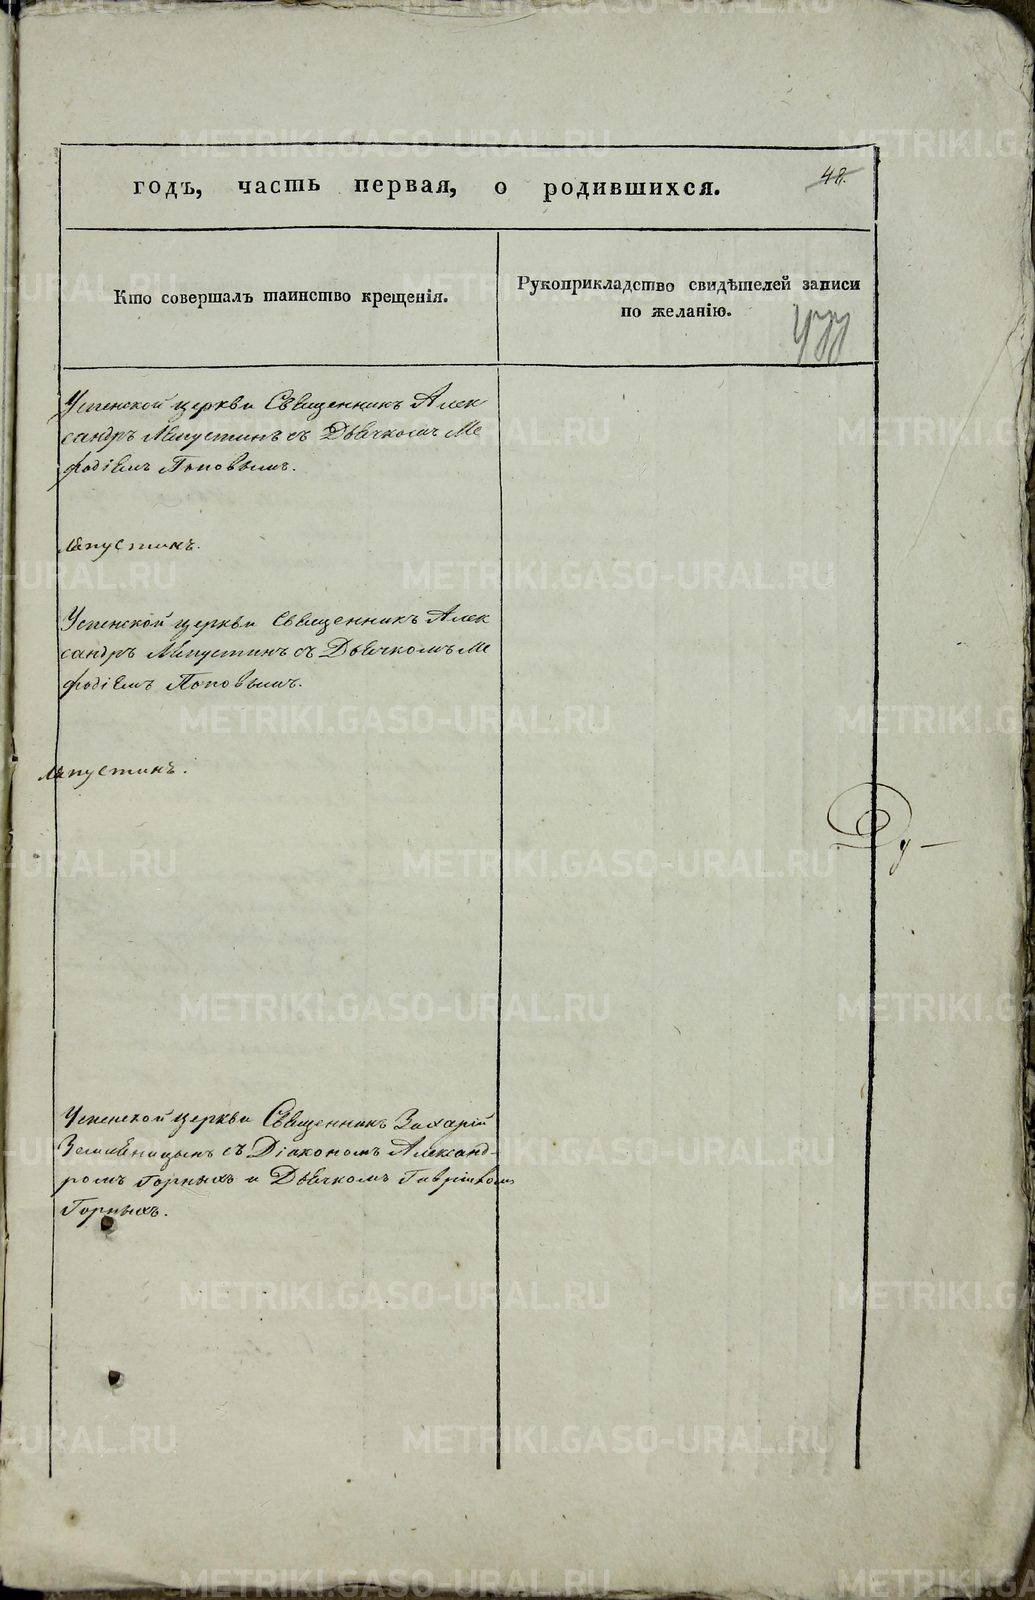 годъ, часть первая, о родившихся.
48.
Кто совершалъ таинство крещенія.
Рукоприкладство свидѣтелей записи
по желанію.
Успенской церкви Священникъ Алек-
сандръ Ляпустинъ съ Дьячкомъ Ме
фодіемъ Поповымъ.
Ляпустинъ.
Успенской церкви Священникъ Алек
сандръ Ляпустинъ съ Дьячкомъ Ме
фодіемъ Поповымъ.
Ляпустинъ.
Успенской церкви Священникъ Захарій
Земляницынъ съ Діакономъ Александ-
ромъ Горныхъ и Дьячкомъ Гавріиломъ
Горныхъ.
METRIKI.GASO-URAL.RU